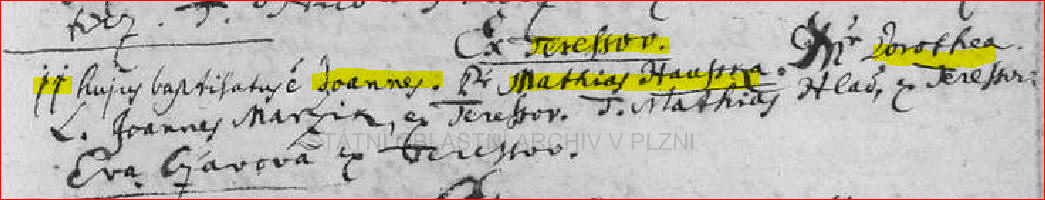 Ex Teressov. Mr Dorothea.
jj hujus baptisatus é Joannes. Pr Mathias Hausska.
L. Joannes Marzin, ex Teressov. T. Mathias Hlad, ex Teressov:
Eva ex Teressov.
STÁTNÍ OBLASTNÍ ARCHIV V PLZNI